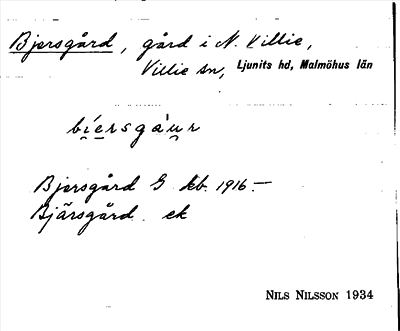 Bjersgård, gård i N. Villie,
Villie sn, Ljunits hd, Malmöhus län
bíersgàur
Bjersgård G kb. 1916.—
Bjärsgård ek
NILS NILSSON 1934